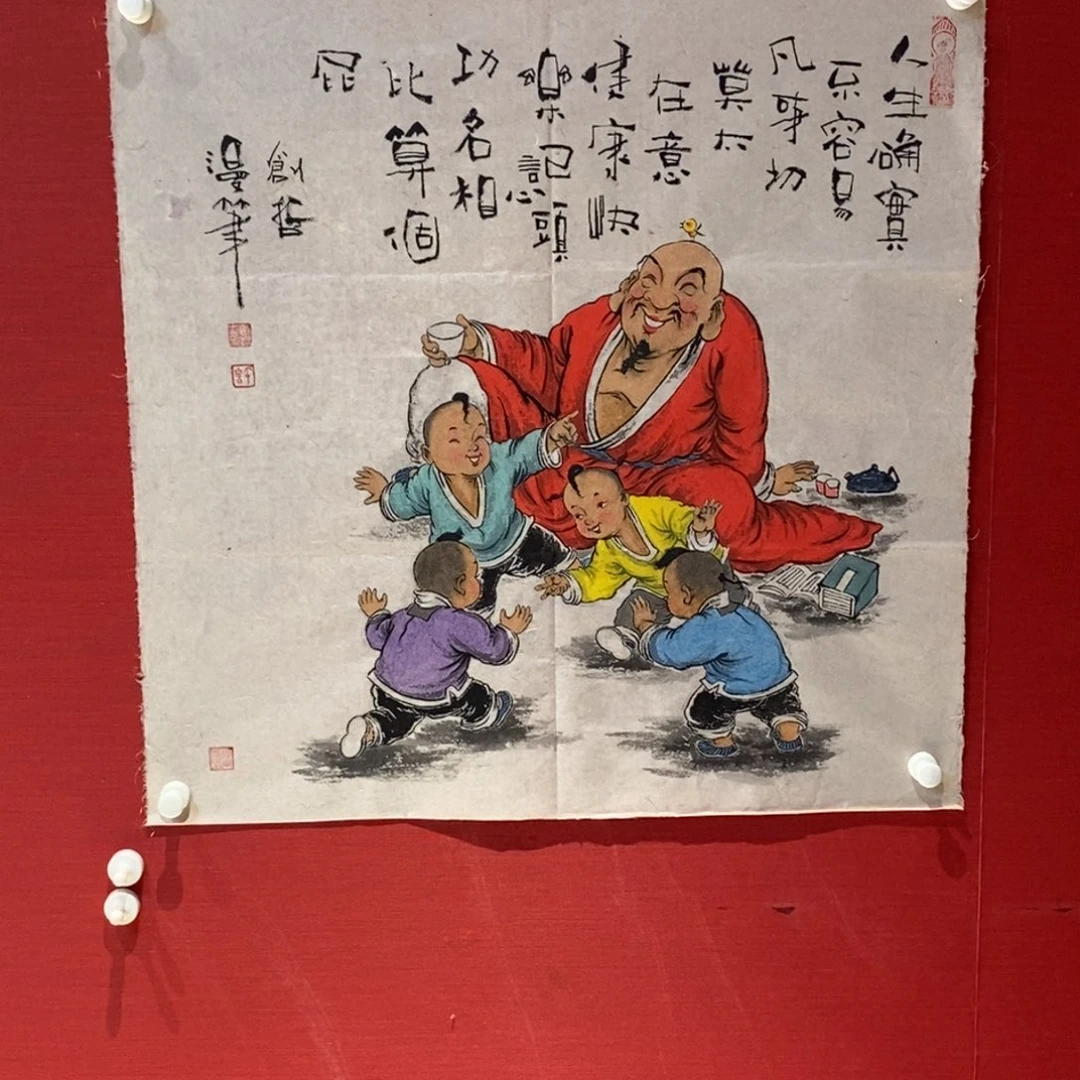 人生确實
不容易
凡事切
莫太
在意
健康快
樂記心頭
功名相
比算個
屁
創哲
漫筆